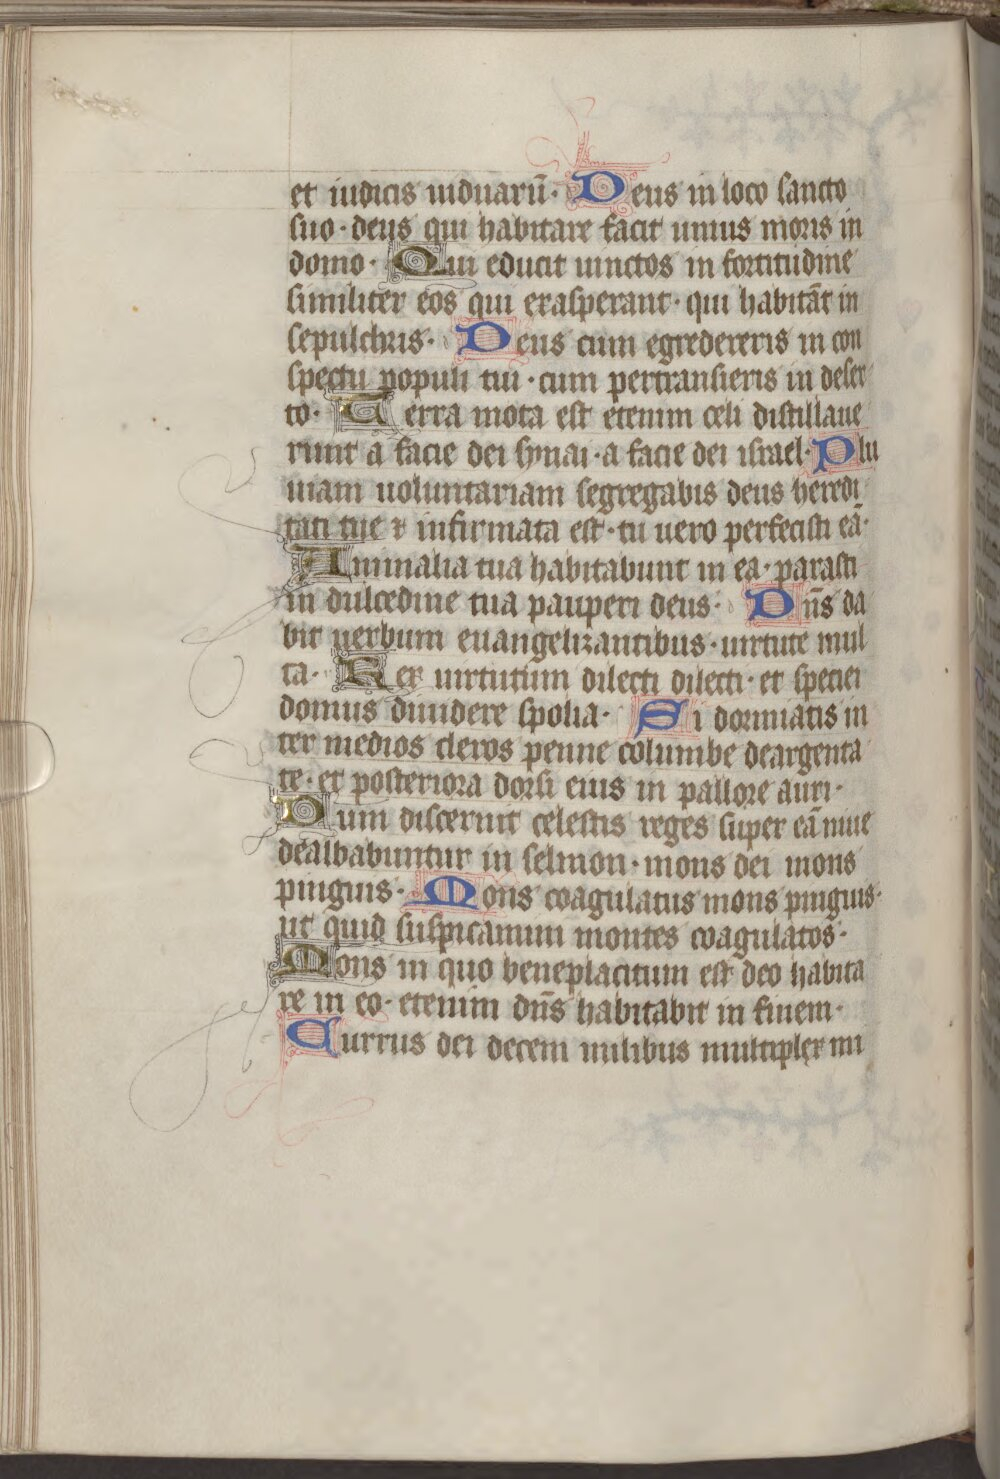 et iudicis uiduarū· Deus in loco sancto
suo· deus qui habitare facit unius moris in
domo· Qui educit uinctos in fortitudine
similiter eos qui exasperant· qui habitāt in
sepulchris· Deus cum egredereris in con
spectu populi tui· cum pertransieris in deser
to· Terra mota est etenim celi distillaue
runt a facie dei synai· a facie dei israel· Plu
uiam uoluntariam segregabis deus heredi
tati tue ⁊ infirmata est· tu uero perfecisti eā·
Animalia tua habitabunt in ea· parasti
in dulcedine tua pauperi deus· Dn̄s da
bit uerbum euangelizantibus· uirtute mul
ta· Rex uirtutum dilecti dilecti· et speciei
domus diuidere spolia· Si dormiatis in
ter medios cleros penne columbe deargenta
te· et posteriora dorsi eius in pallore auri·
Dum discernit celestis reges super eā niue
dealbabuntur in selmon· mons dei mons
pinguis· Mons coagulatus mons pinguis·
ut quid suspicamini montes coagulatos·
Mons in quo beneplacitum est deo habita
re in eo· etenim dn̄s habitabit in finem·
Currus dei decem milibus multiplex mi